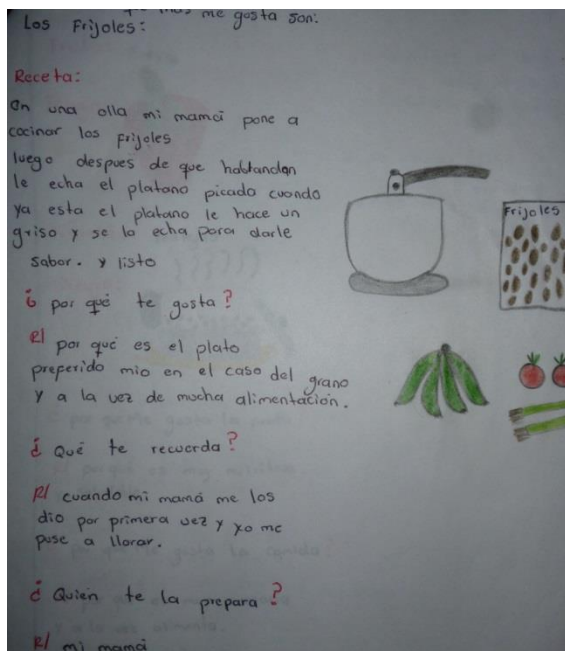 que mas me gusta son:
Los Frijoles:
Receta:
En una olla mi mamá pone a
cocinar los frijoles
luego despues de que hablandan
le echa el platano picado cuando
ya esta el platano le hace un
griso y se lo echa para darle
sabor. y listo
¿ por qué te gusta?
R/ por qué es el plato
preferido mio en el caso del grano
y a la vez de mucha alimentación.
¿ Qué te recuerda?
R/ cuando mi mamá me los
dio por primera vez y yo me
puse a llorar.
¿ Quien te la prepara?
R/ mi mamá
Frijoles